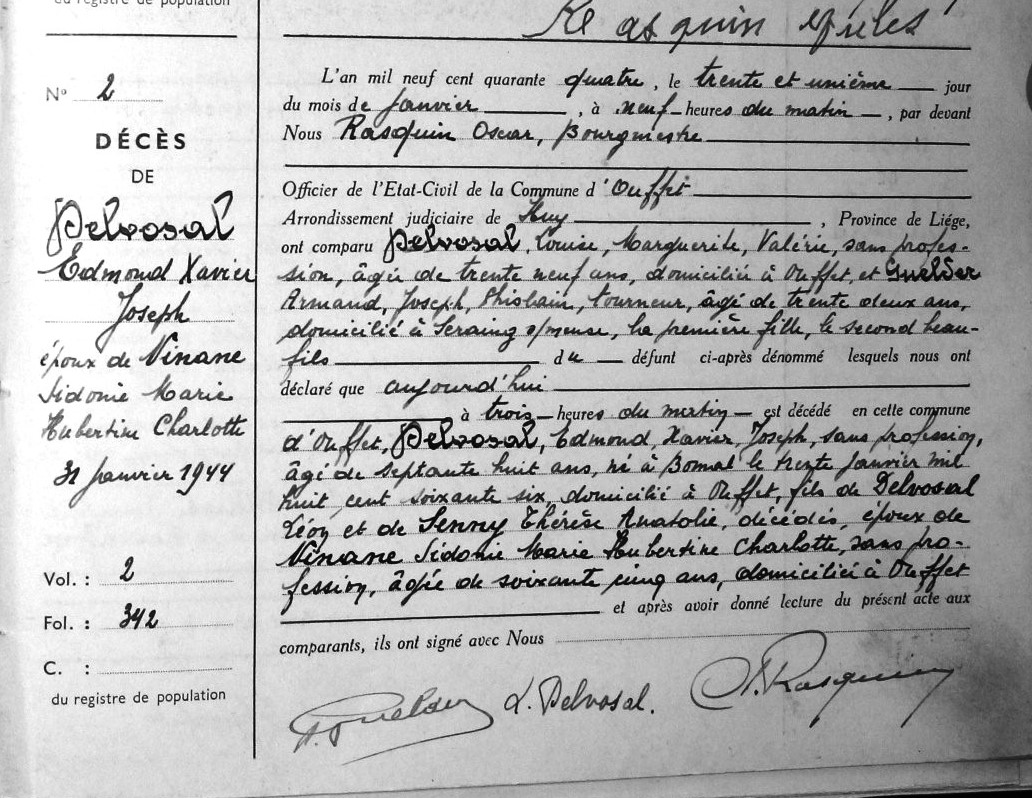 du registre de population
Nº 2
DÉCÈS
DE
Delvosal
Edmond Xavier
Joseph
époux de Vinane
Sidonie Marie
Hubertine Charlotte
31 janvier 1944
Vol. : 2
Fol. : 342
C. :
du registre de population
L'an mil neuf cent quarante quatre, le trente et unième jour
du mois de janvier, à neuf heures du matin, par devant
Nous Rasquin Oscar, Bourgmestre
Officier de l'Etat-Civil de la Commune d'Ouffet
Arrondissement judiciaire de Huy, Province de Liége,
ont comparu Delvosal, Louise, Marguerite, Valérie, sans profes-
sion, âgée de trente neuf ans, domiciliée à Ouffet, et Guelder
Armand, Joseph, Ghislain, tourneur, âgé de trente deux ans,
domicilié à Seraing s/meuse, la première fille, le second beau-
fils du défunt ci-après dénommé lesquels nous ont
déclaré que aujourd'hui
à trois heures du matin est décédé en cette commune
d'Ouffet, Delvosal, Edmond, Xavier, Joseph, sans profession,
âgé de septante huit ans, né à Bomal le trente janvier mil
huit cent soixante six, domicilié à Ouffet, fils de Delvosal
Léon et de Lenny Thérèse Anatolie, décédés, époux de
Vinane Sidonie Marie Hubertine Charlotte, sans pro-
fession, âgée de soixante cinq ans, domiciliée à Ouffet
et après avoir donné lecture du présent acte aux
comparants, ils ont signé avec Nous
A. Guelder L. Delvosal. O. Rasquin